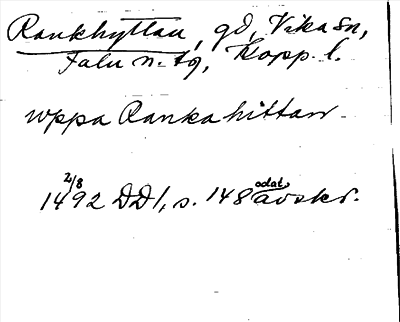 Rankhyttan, gd, Vika sn,
Falu n. tg, Kopp. l.
uppa Ranka hittan
1492 2/8 DD 1, s. 148 odat. avskr.